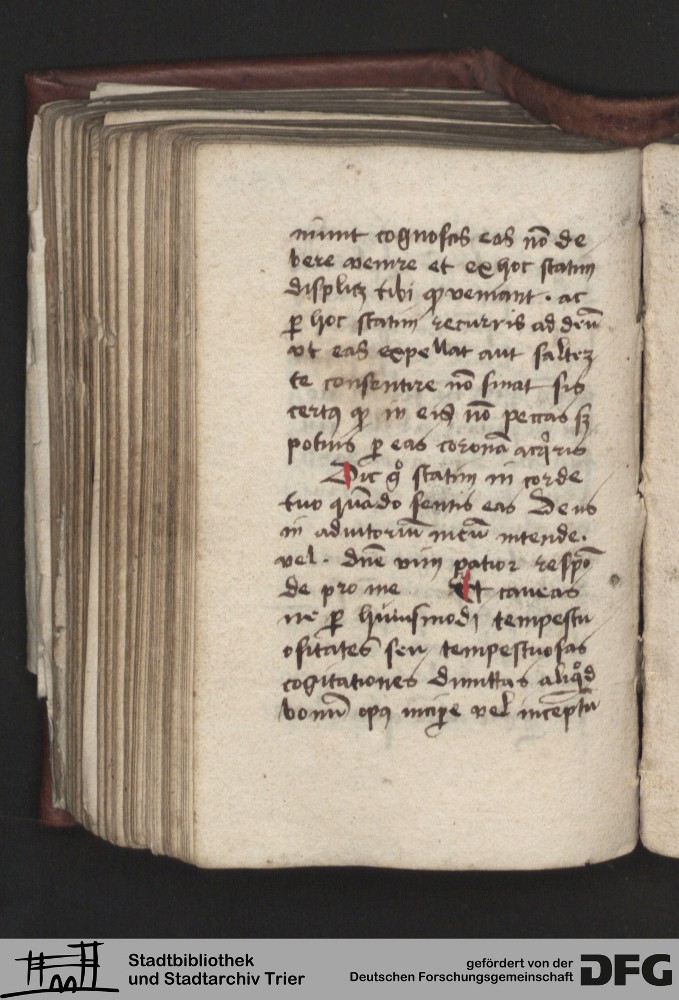 niunt cognoscis eas nō de
bere venire et ex hoc statim
displicꝫ tibi ꝙ veniant . ac
ꝑ hoc statim recurris ad deū
vt eas expellat aut saltēꝫ
te consentire nō sinat sis
certꝰ ꝙ in eis nō peccas sꝫ
potius ꝑ eas coronā acq̄ris
Dic gͦ statim in corde
tuo quādo sentis eas Deus
in adiutoriū meū intende .
vel . dn̄e vim patior respō
de pro me Et caueas
ne ꝑ huiusmodi tempestu
ositates seu tempestuosas
cogitationes dimittas aliqͥd
bonū opꝰ incipe vel inceptū
Stadtbibliothek
und Stadtarchiv Trier
gefördert von der
Deutschen Forschungsgemeinschaft
DFG